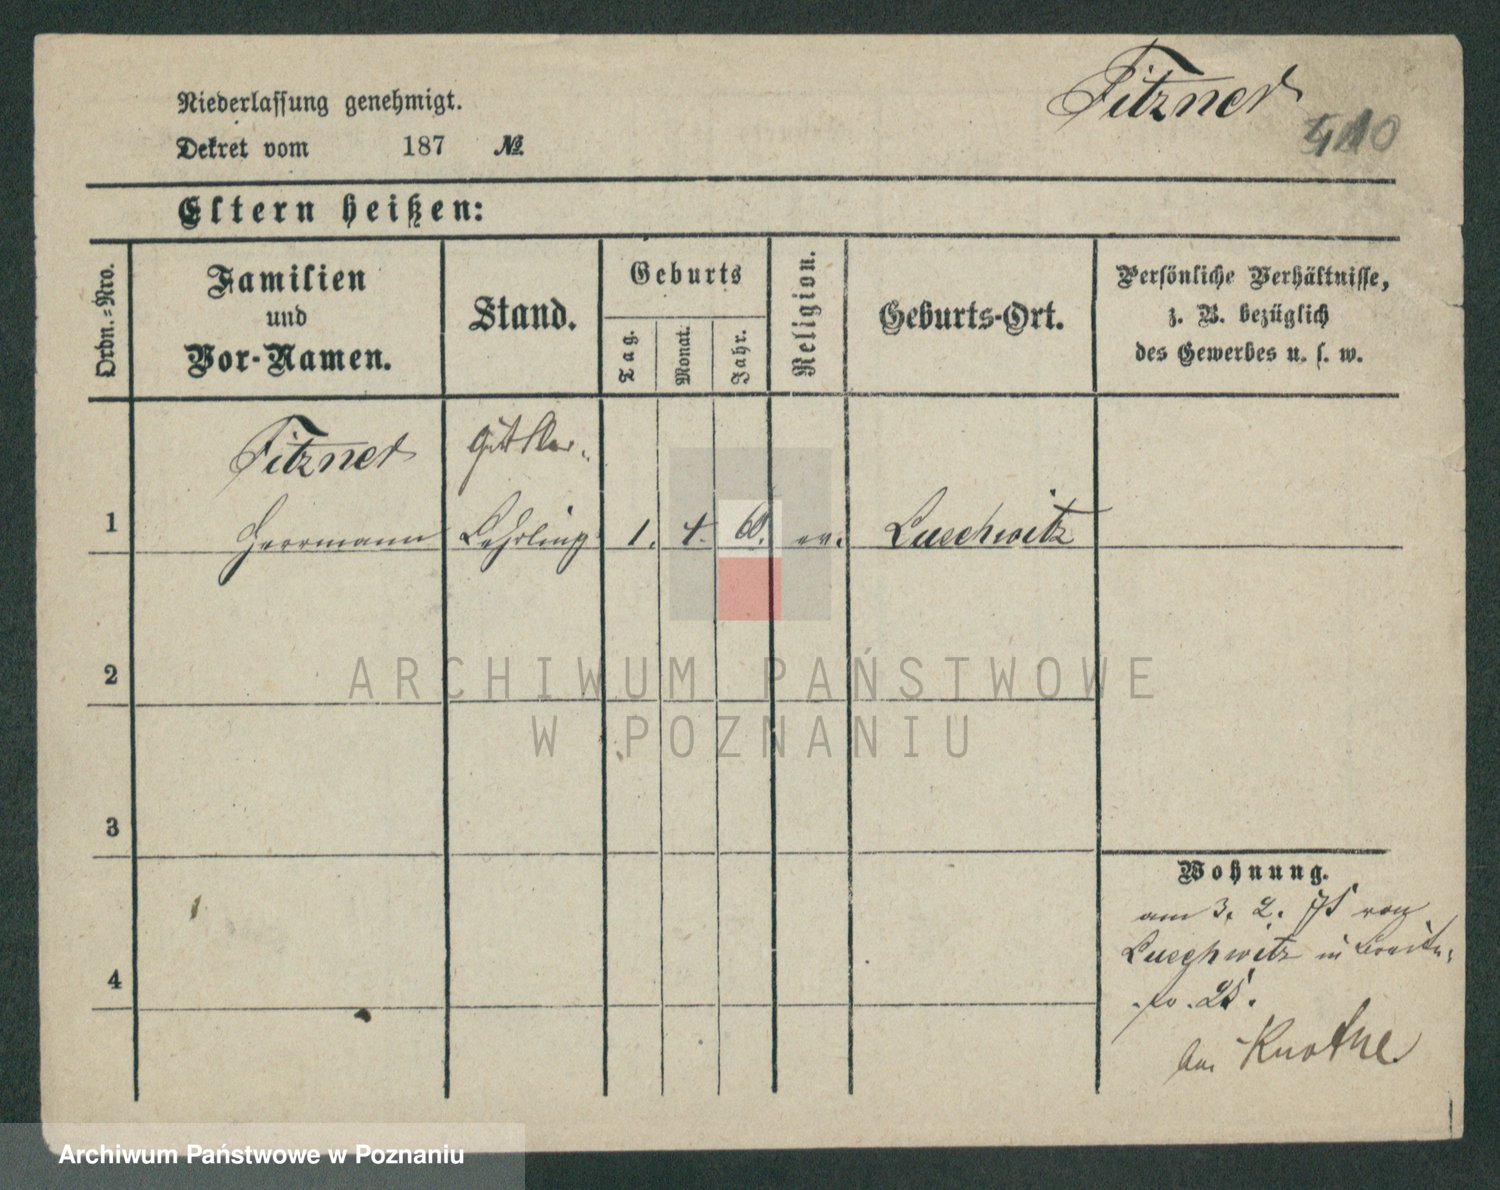 Fitzner
Niederlassung genehmigt.
Dekret vom 187 №
Eltern heißen:
Ordn.-Nro.
Familien
und
Vor-Namen.
Stand.
Geburts
Tag.
Monat.
Jahr.
Religion.
Geburts-Ort.
Persönliche Verhältnisse,
z. B. bezüglich
des Gewerbes u. s. w.
Fitzner
1 Herrmann Lehrling 1. 4. 60. ev. Lueschwitz
2
3
4
Wohnung.
am 3. 2. 75 von
Lueschwitz in
25.
bei Knothe
ARCHIWUM PAŃSTWOWE
W POZNANIU
Archiwum Państwowe w Poznaniu